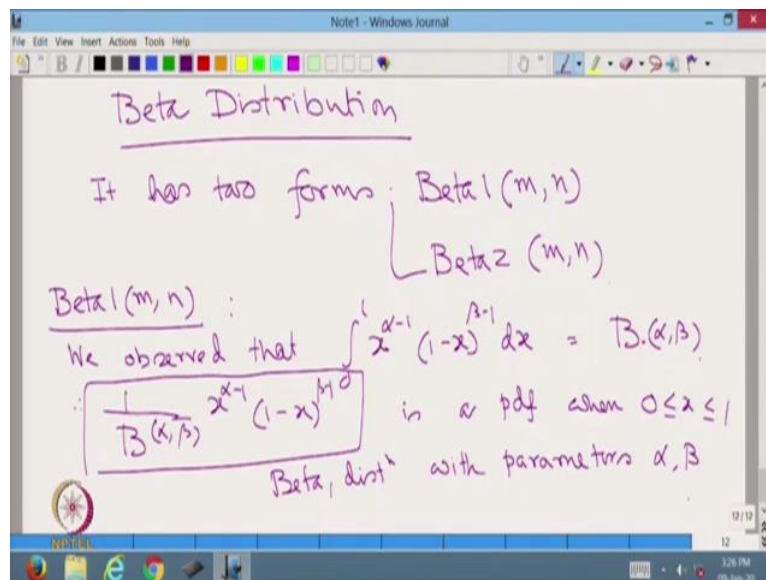 Note1 - Windows Journal
File Edit View Insert Actions Tools Help
B I
Beta Distribution
It has two forms: Beta1 (m, n)
Beta2 (m, n)
Beta1 (m, n) :
We observed that ∫₀¹ x^(α-1) (1-x)^(β-1) dx = B(α, β)
∴ 1/B(α, β) x^(α-1) (1-x)^(β-1) is a pdf when 0 ≤ x ≤ 1
Beta₁ distⁿ with parameters α, β
NPTEL
12/12
12
3:26 PM